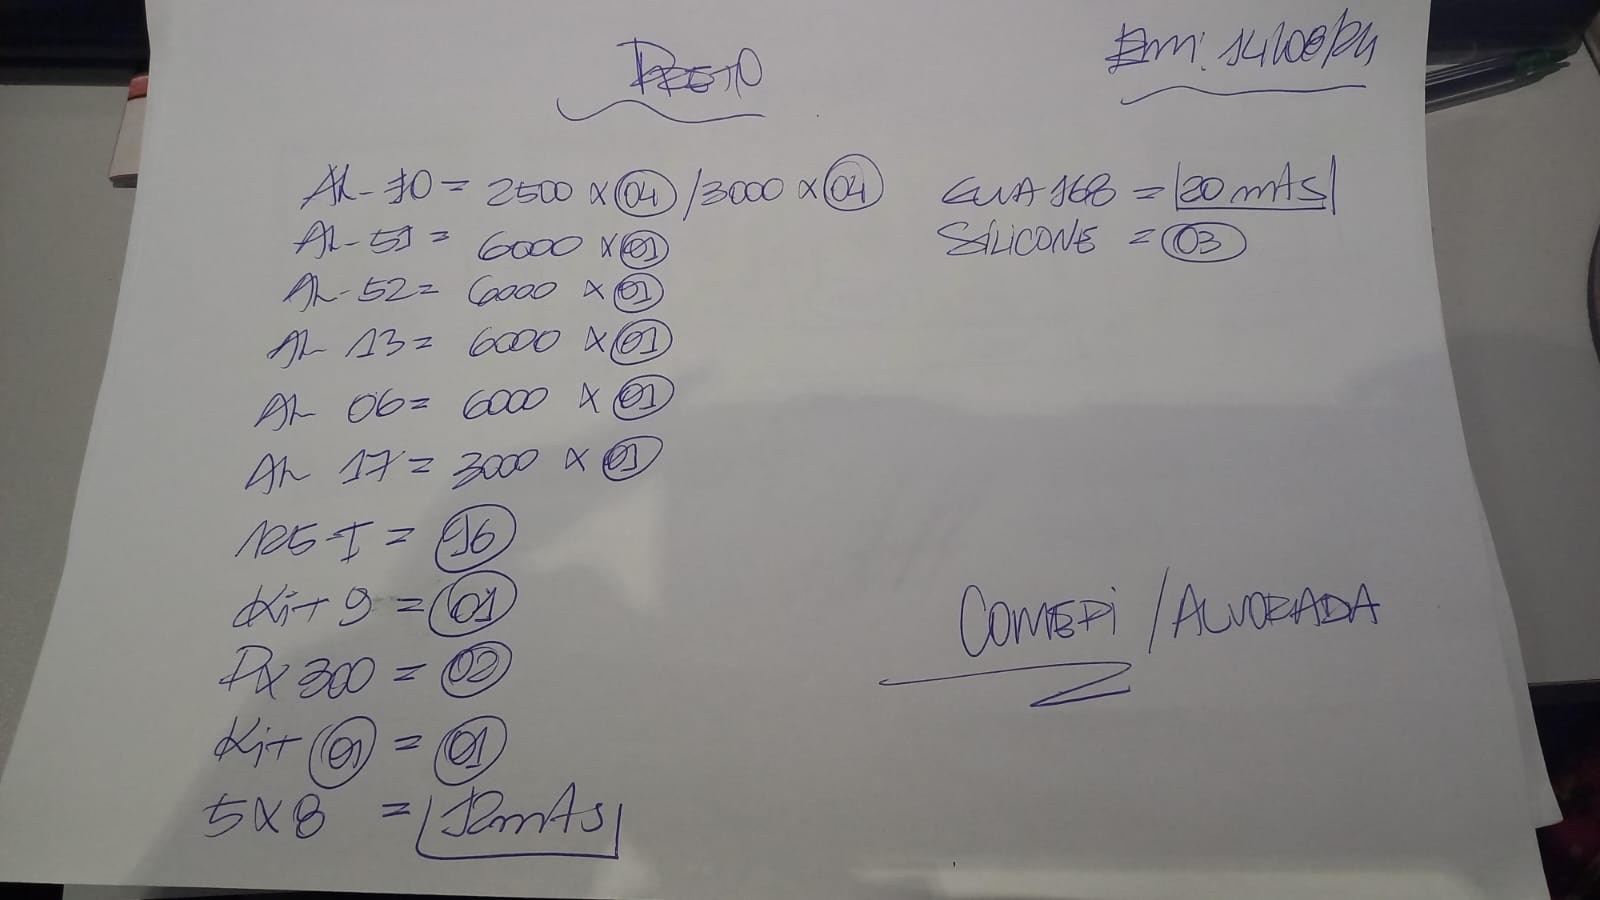 PRETO
Em: 14/08/24
AL-10 = 2500 x 04 / 3000 x 04
AL-51 = 6000 x 01
AL-52 = 6000 x 01
AL 13 = 6000 x 01
AL 06 = 6000 x 01
AL 17 = 3000 x 01
125-I = 16
Kit 9 = 01
PX 300 = 02
Kit 01 = 01
5x8 = 12mts
GUA 168 = 20 mts
SILICONE = 03
COMEPI / ALVORADA